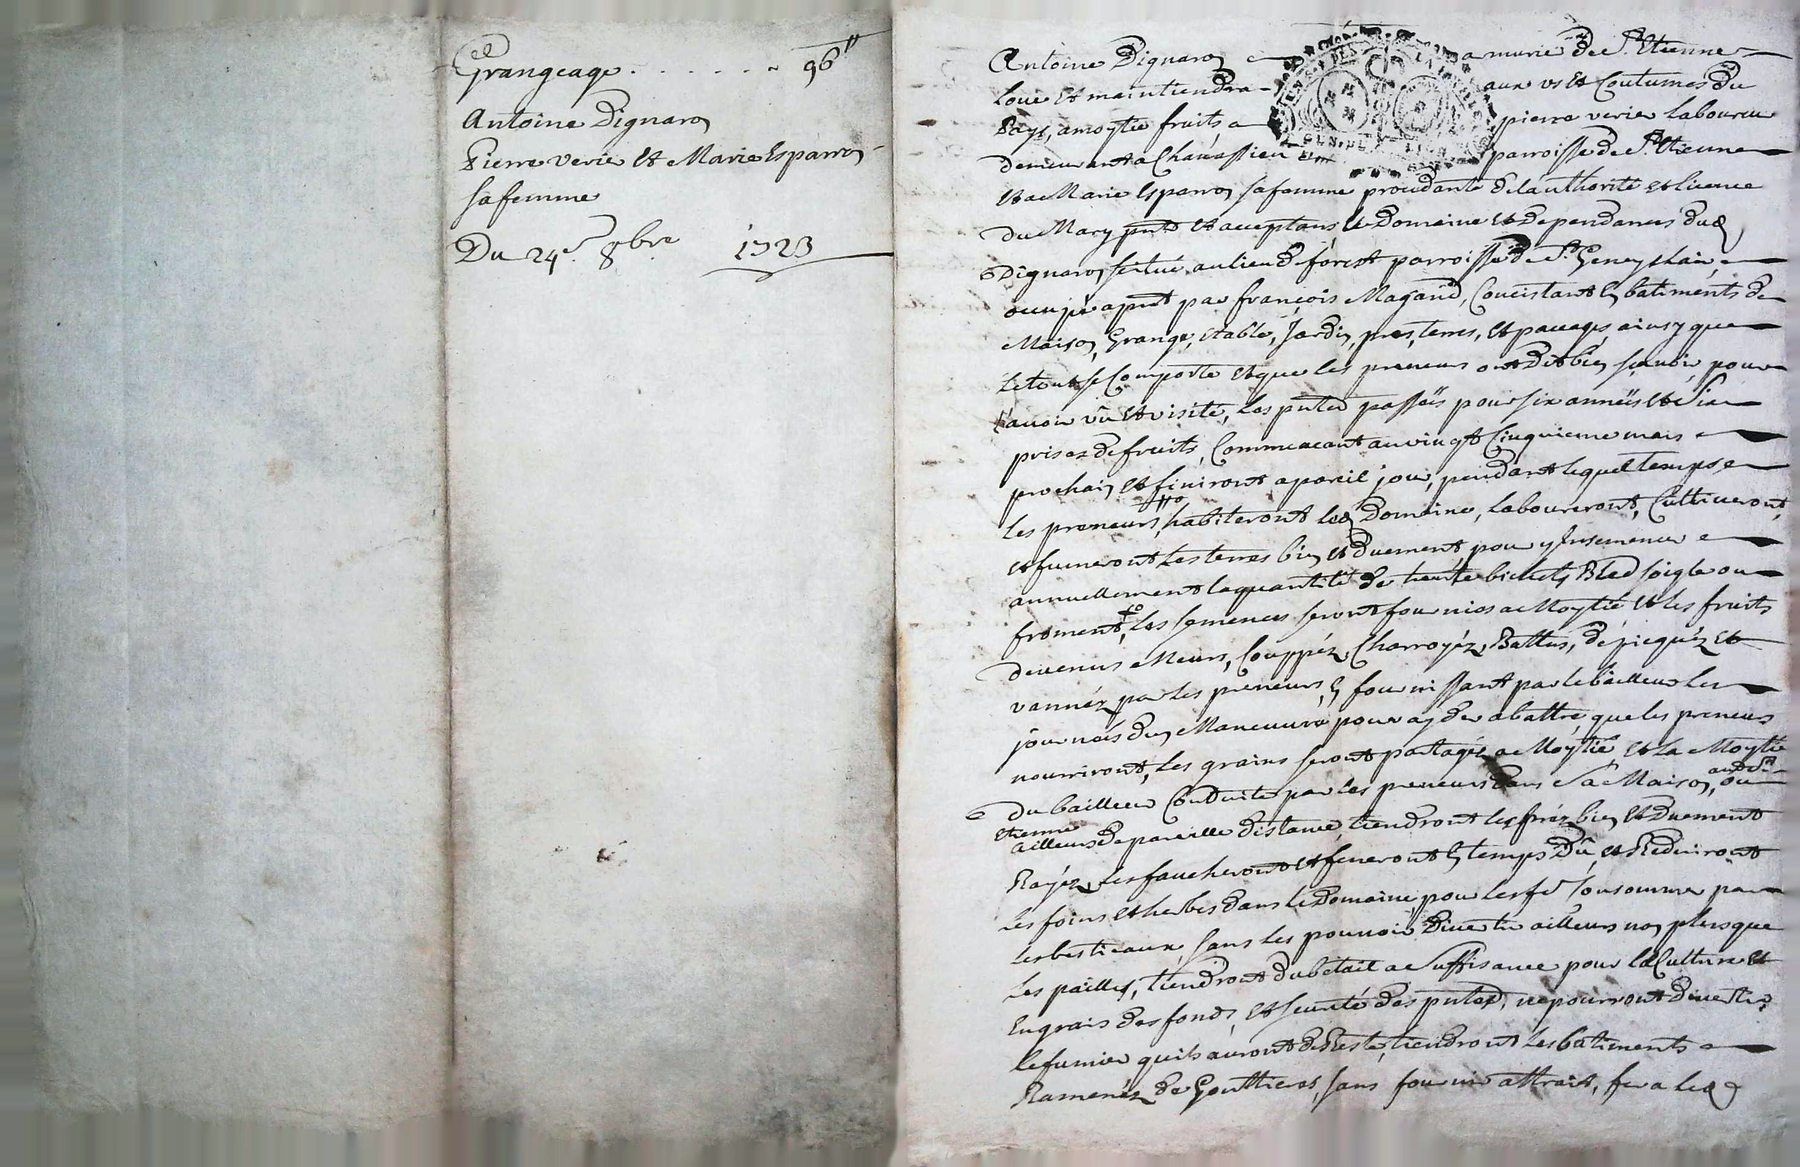 Grangeage . . . . . . . 96"
Antoine Dignaron
Pierre Verie et Marie Esparron
sa femme
Du 24e 8bre 1723
Antoine Dignaron de St Etienne
loue et maintiendra aux us et Coutumes du
Pays, a moytie fruits a pierre verie laboureur
demeurant a parroisse de St Etienne
et a Marie Esparron sa femme procedante de lauthorité et licence
du Mary pnts et acceptans le Domaine et dependances dud
Dignaron scitué au lieu de forest parroisse de St Geney
occupé apnt par françois Magand, Concistant en batiments de
Maison, Grange, etable, Jardin, pres, terres, et pacages ainsy que
le tout se Comporte et que les preneurs ont dit bien sçavoir pour
l'avoir vû et visité, les pntes passéës pour six annéës et Six
prises de fruits, Commencant au vingt Cinquieme mars
prochain et finiront a pareil jour, pendant lequel temps
les preneurs, habiteront led Domaine, laboureront, Cultiveront,
et fumeront les terres bien et Duement pour y Insemencer
annuellement la quantité de trente bichets Bled soigle ou
froment, les semences seront fournies a Moytié et les fruits
devenus Meurs, Couppéz, Charroyéz, Battus, dépicquéz et
vannéz par les preneurs, en fournissant par le bailleur les
journéës dun Maneuvre pour ayder a battre que les preneurs
nourriront, les grains seront partagéz a Moytié et la Moytié
du bailleur Conduite par les preneurs dans Sa Maison, aud St
Etienne ou
ailleurs de pareille distance, tiendront les préz bien et Duement
Rayéz, les faucheront et feneront en temps Dû et Reduiront
les foins et herbes dans le Domaine pour les fe Consommer par
les bestieaux sans les pouvoir Divertir ailleurs non plus que
les pailles, tiendront du betail a Suffisance pour la Culture et
Engrais des fonds, et seureté des pntes, ne pourront Divertir
le fumier quils auront de Reste, tiendront les batiments
Ramenéz de Gouttieres, sans fournir attrait, fera led